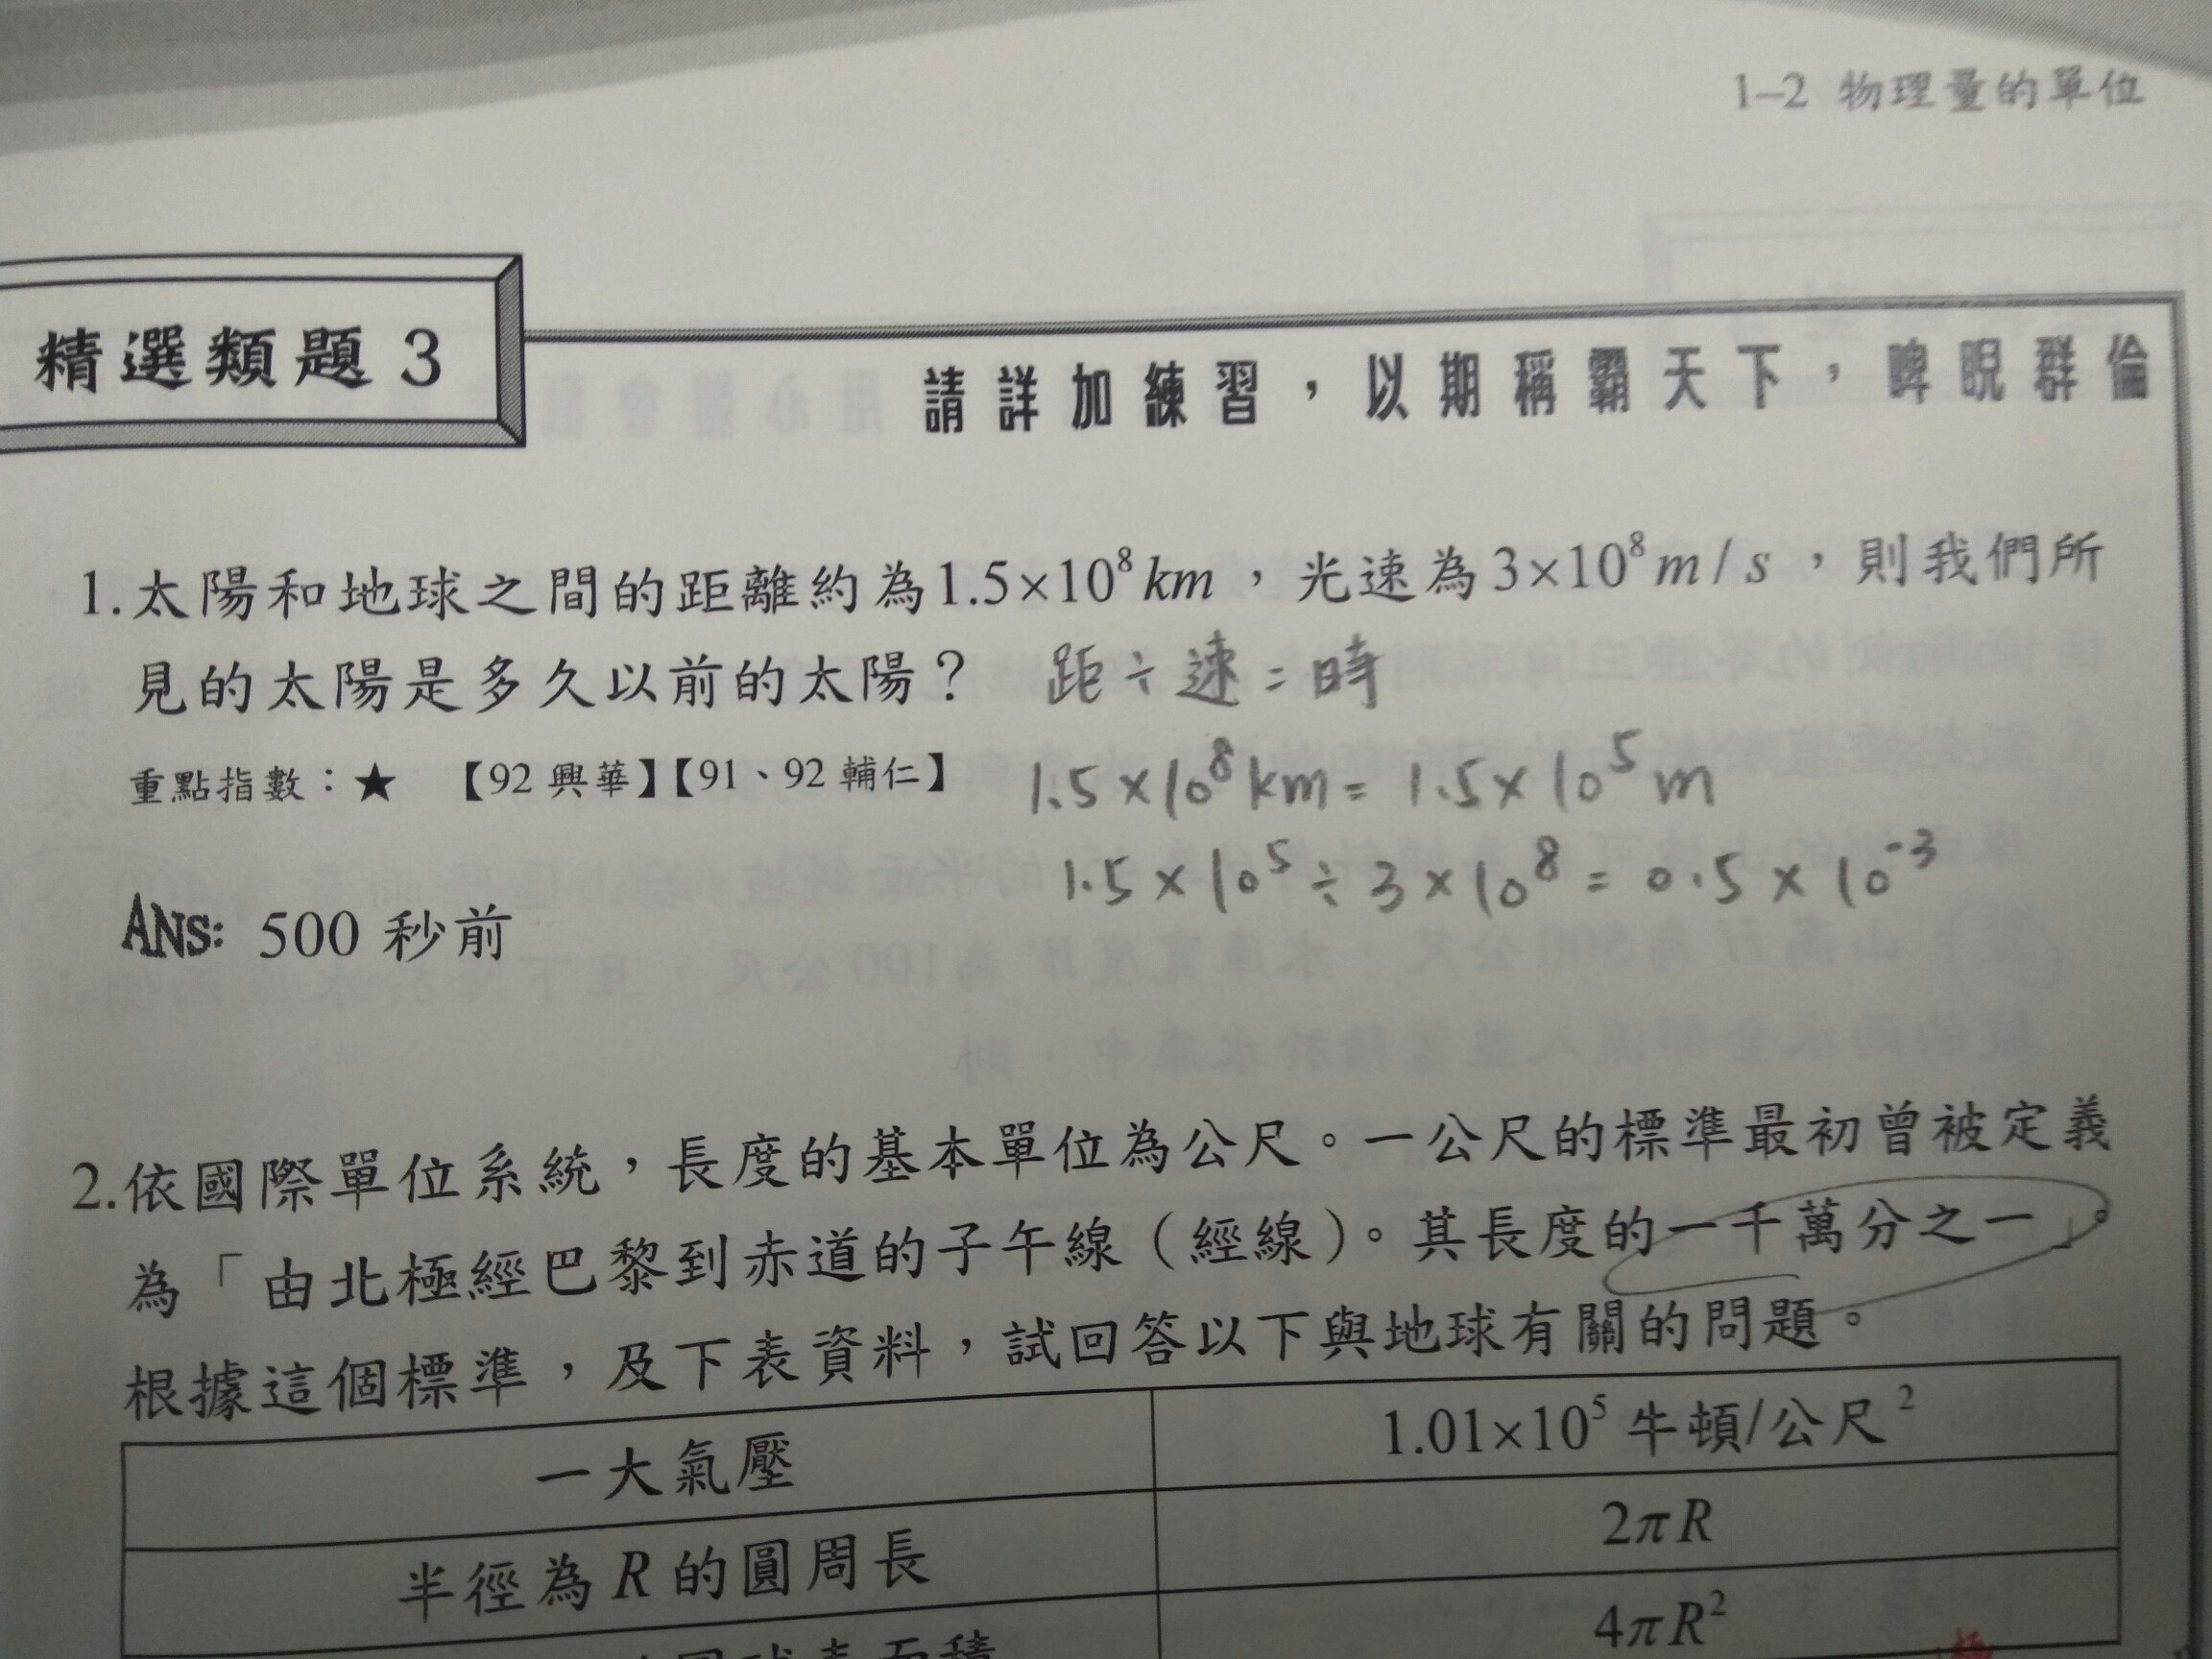 1–2 物理量的單位
精選類題 3
請詳加練習，以期稱霸天下，睥睨群倫
1.太陽和地球之間的距離約為1.5×10⁸km，光速為3×10⁸m/s，則我們所
見的太陽是多久以前的太陽？ 距÷速=時
重點指數：★ 【92 興華】【91、92 輔仁】
1.5×10⁸km=1.5×10⁵m
1.5×10⁵÷3×10⁸=0.5×10⁻³
ANS: 500 秒前
2.依國際單位系統，長度的基本單位為公尺。一公尺的標準最初曾被定義
為「由北極經巴黎到赤道的子午線（經線）。其長度的一千萬分之一」。
根據這個標準，及下表資料，試回答以下與地球有關的問題。
一大氣壓 1.01×10⁵ 牛頓/公尺²
半徑為 R 的圓周長 2πR
表面積 4πR²